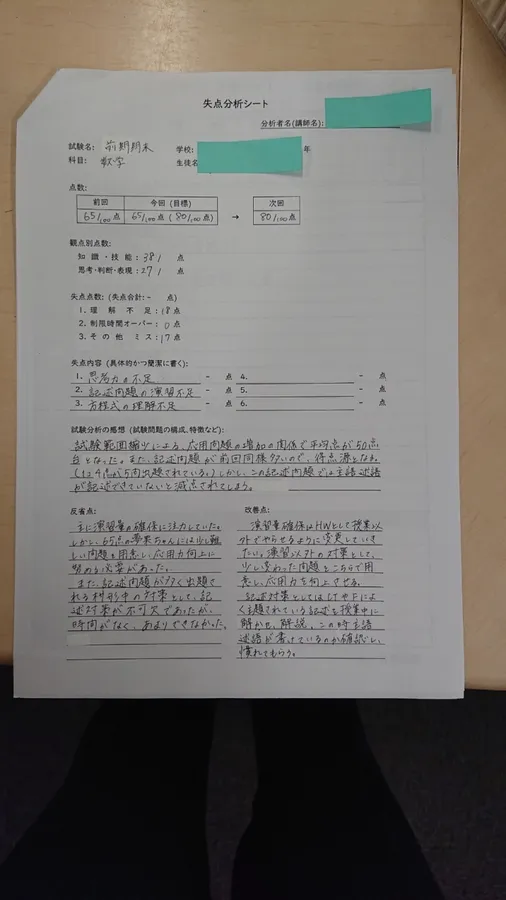 失点分析シート
分析者名(講師名):
試験名: 前期期末 学校: 年
科目: 数学 生徒名
点数:
前回 今回 (目標) 次回
65/100 点 65/100 点 ( 80/100 点) → 80/100 点
観点別点数:
知識・技能: 38/ 点
思考・判断・表現: 27/ 点
失点点数: (失点合計: - 点)
1. 理解不足: 18 点
2. 制限時間オーバー: 0 点
3. その他ミス: 17 点
失点内容 (具体的かつ簡潔に書く):
1. 思考力の不足 - 点 4. - 点
2. 記述問題の演習不足 - 点 5. - 点
3. 方程式の理解不足 - 点 6. - 点
試験分析の感想 (試験問題の構成、特徴など):
試験範囲縮少による、応用問題の増加の関係で平均点が50点
台となった。また、記述問題が前回同様多いので、得点源となる。
(1つ4点が5問出題されている。) しかし、この記述問題では主語述語
が記述できていないと減点されてしまう。
反省点:
主に演習量の確保に注力していた。
しかし、65点の ちゃんには少し難
しい問題を用意し、応用力向上に
努める必要があった。
また、記述問題が多く出題さ
れる 中の対策として、記
述対策が不可欠であったが、
時間がなく、あまりできなかった。
改善点:
演習量確保はHWとして授業以
外でやらせるように変更していき
たい。演習以外の対策として、
少し変わった問題をこちらで用
意し、応用力を向上させる。
記述対策としてはCTやFによ
く出題されている記述を授業中に
解かせ、解説。この時主語
述語が書けているのか確認し、
慣れてもらう。